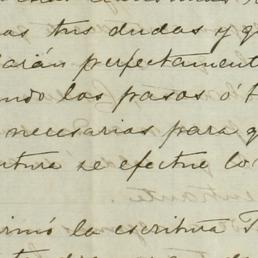 as tus dudas y q
arán perfectament
ndo los pasos ó t
necesarias para q
ntura se efectue lo
entrante.
rmó la escritura T